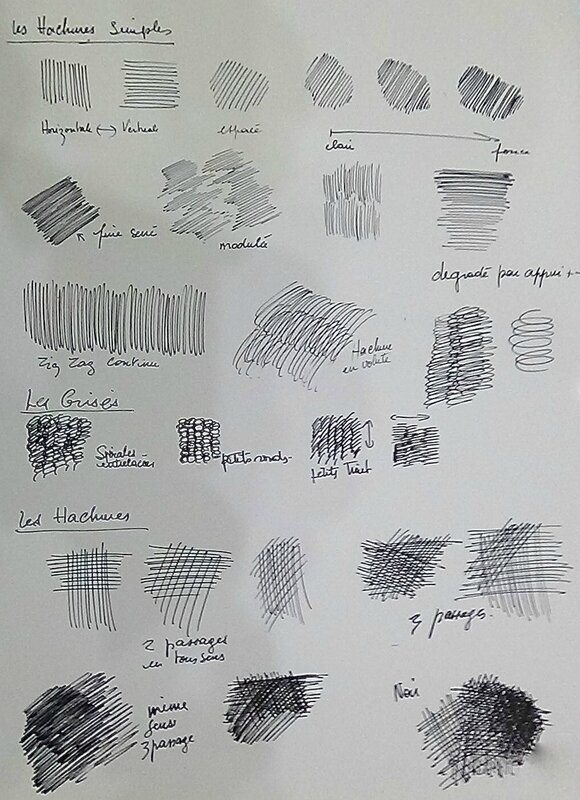 Les Hachures Simples
Horizontale ↔ Verticale
espacé
clair
foncé
fine serré
modulé
degradé par appui +-
Zig Zag continu
Hachure
en volute
Les Grisés
Spirales
petits ronds
petits Trait
Les Hachures
2 passages
en tous sens
3 passages.
même
sens
3 passage
Noir